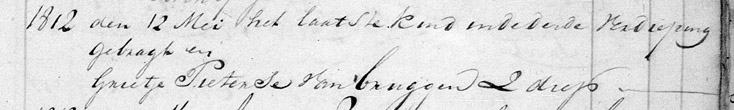 1812 den 12 Mei het laatste kind in de derde Verdieping
gebragt en
Greetje Pieterse Van bruggen 2 diep